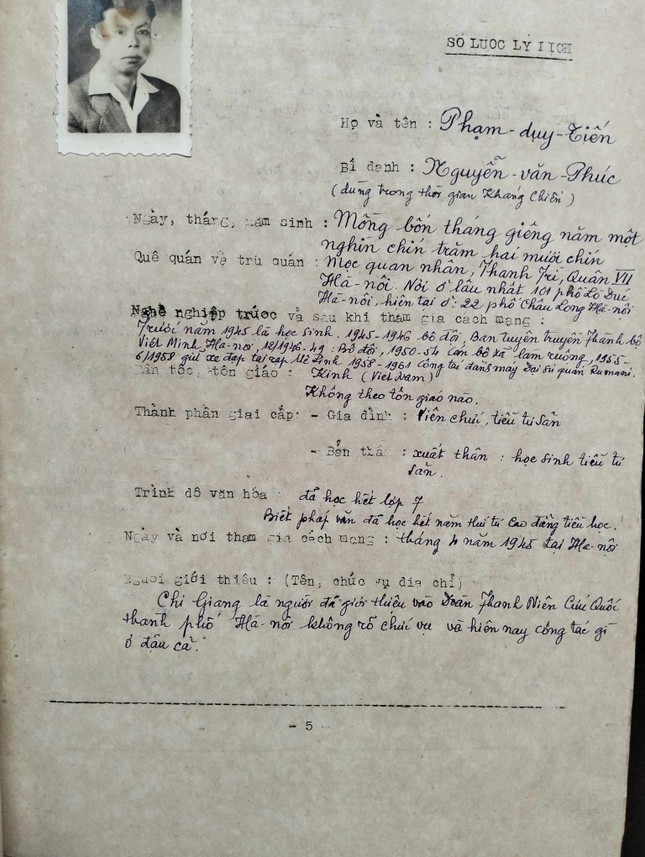 SƠ LƯỢC LÝ LỊCH
Họ và tên : Phạm-duy-Tiến
Bí danh : Nguyễn-văn-Phúc
(dùng trong thời gian Kháng Chiến)
Ngày, tháng, năm sinh : Mồng bốn tháng giêng năm một
nghìn chín trăm hai mươi chín
Quê quán và trú quán : Mọc quan nhân, Thanh Trì, Quận VII
Hà-nội. Nơi ở lâu nhất 101 phố Lò Đúc
Hà-nội. hiện tại ở: 22 phố Châu Long Hà-nội
Nghề nghiệp trước và sau khi tham gia cách mạng :
Trước năm 1945 là học sinh. 1945-1946 bộ đội, Ban tuyên truyền Thành bộ
Việt Minh Hà-nội, 12/1946-49: Bộ đội, 1950-54 cán bộ xã làm ruộng, 1955-
6/1958 giữ xe đạp tại rạp Mê Linh 1958-1961 công tác đánh máy Đại sứ quán Rumani.
Dân tộc, tôn giáo : Kinh (Việt Nam)
Không theo tôn giáo nào.
Thành phần giai cấp: - Gia đình : Viên chức, tiểu tư sản
- Bản thân : xuất thân : học sinh tiểu tư
sản.
Trình độ văn hóa đã học hết lớp 7
Biết pháp văn đã học hết năm thứ tư Cao đẳng tiểu học.
Ngày và nơi tham gia cách mạng : tháng 4 năm 1945 tại Hà-nội
Người giới thiệu : (Tên, chức vụ địa chỉ)
Chị Giang là người đã giới thiệu vào Đoàn Thanh Niên Cứu Quốc
thành phố Hà-nội không rõ chức vụ và hiện nay công tác gì
ở đâu cả.
- 5 -